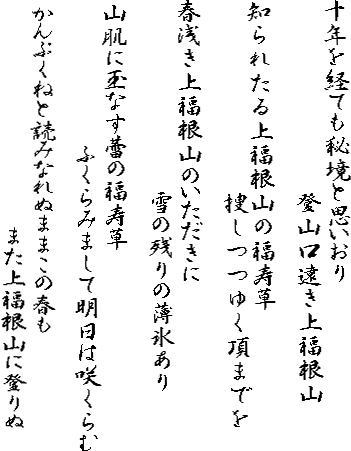 十年を経ても秘境と思いおり
登山口遠き上福根山
知られたる上福根山の福寿草
捜しつつゆく頂までを
春浅き上福根山のいただきに
雪の残りの薄氷あり
山肌に玉なす蕾の福寿草
ふくらみまして明日は咲くらむ
かんぶくねと読みなれぬままこの春も
また上福根山に登りぬ